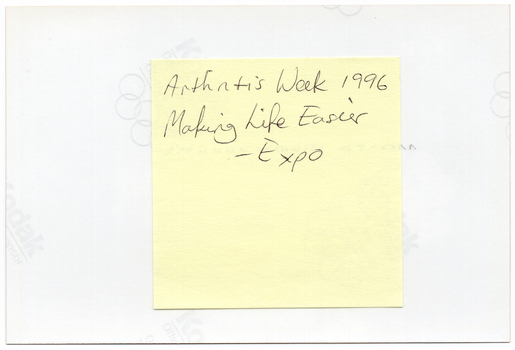 Arthritis Week 1996
Making Life Easier
- Expo
Kodak